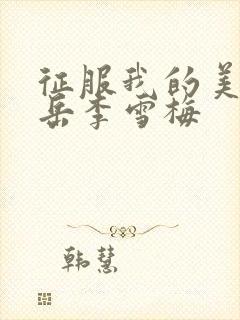 征服我的美
岳李雪梅
韩慧